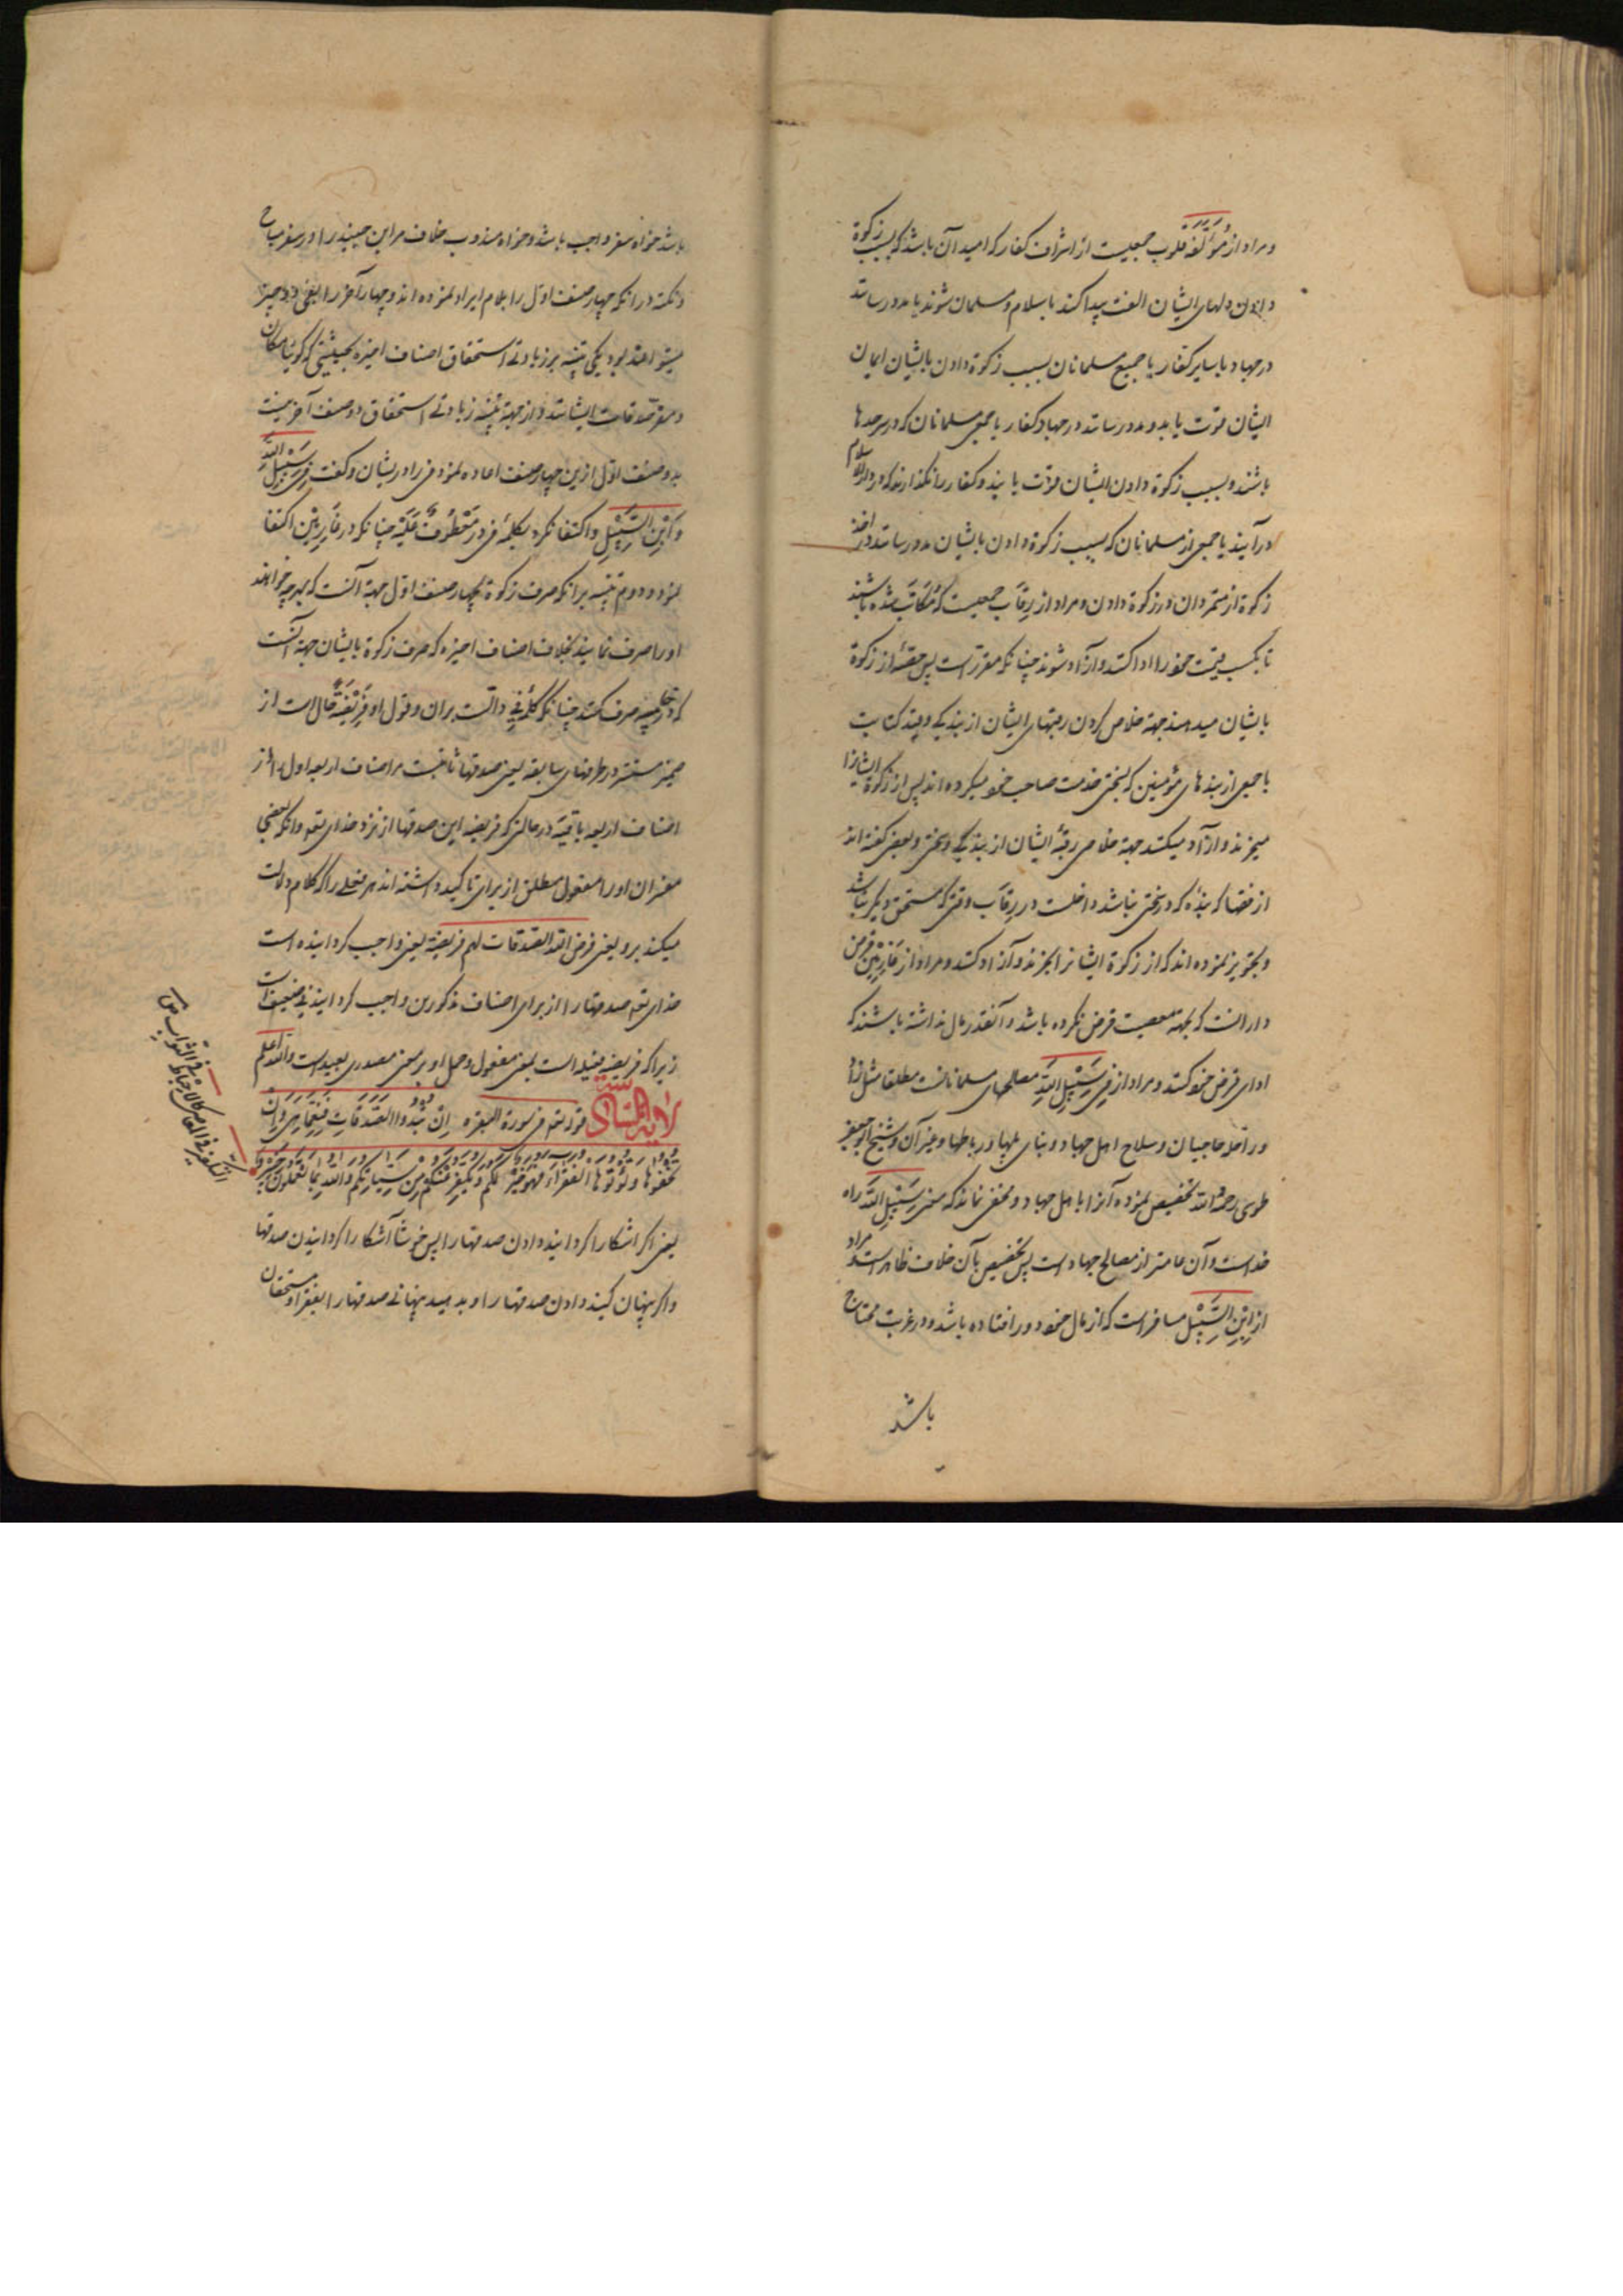 ومراد از مُؤَلَّفَة قلوب جمعیت از اشراف کفار که امید آن باشد که بسبب زکوة
دادن دلهای ایشان الفت پیدا کند باسلام و مسلمان شوند یا مدد رسانند
در جهاد با سایر کفار یا جمیع مسلمانان بسبب زکوة دادن بایشان ایمان
ایشان قوت یابد و مدد رسانند در جهاد کفار یا جمعی مسلمانان که در سرحدها
باشند و بسبب زکوة دادن ایشان قوت یابند و کفار را نگذارند که در دار الاسلام
درآیند یا جمعی از مسلمانان که بسبب زکوة دادن بایشان مدد رسانند در اخذ
زکوة از متمردان در زکوة دادن و مراد از رِقَاب جمعیت که مُکَاتَب شده باشند
تا بکسب قیمت خود را ادا کنند و آزاد شوند چنانکه مقرر است پس حصّهٔ از زکوة
بایشان میدهند جهة خلاص کردن رقبهای ایشان از بندگی و قید کتابت
یا جمعی از بندهای مؤمنین که بسختی خدمت صاحب خود میکرده اند پس از زکوة ایشانرا
میخرند و آزاد میکنند جهة خلاصی رقبهٔ ایشان از بندگی و سختی و بعضی گفته اند
از فقها که بندهٔ که در سختی نباشد داخلست در رِقَاب وقتی که مستحق دیگر نباشد
و تجویز نموده اند که از زکوة ایشانرا بخرند و آزاد کنند و مراد از غَارِمِیْن قرض
دارانست که بجهة معصیت قرض نکرده باشد و آنقدر مال نداشته باشند که
ادای قرض خود کنند و مراد از فِی سَبِیْلِ اللَّهِ مصلحتهای مسلمانانست مطلقا مثل زاد
و راحله حاجیان و سلاح اهل جهاد و بنای پلها و رباطها و غیر آن و شیخ ابو جعفر
طوسی رحمه الله تخصیص نموده آنرا باهل جهاد و مخفی نماند که معنی سَبِیْلِ اللَّه راه
خداست و آن عامتر از مصالح جهاد است پس تخصیص بآن خلاف ظاهر است و مراد
از اِبْنِ السَّبِیْل مسافر است که از مال خود دور افتاده باشد و در غربت محتاج
باشد
باشد خواه سفر واجب باشد و خواه مندوب خلاف مر ابن جنید را در سفر مباح
و نکته در آنکه چهار صنف اول را بلام ایراد نموده اند و چهار آخر را بفی دو چیز
میتواند بود یکی تنبیه بر زیادتی استحقاق اصناف اخیره بحیثیتی که گویا مکان
و مقر صدقات ایشانند و از جهة تنبیه زیادتی استحقاق دو صنف آخر نسبت
بدو صنف اول ازین چهار صنف اعاده نمود فی را در ایشان و گفت فِی سَبِیْلِ اللَّهِ
وَابْنِ السَّبِیْلِ و اکتفا نکرد بکلمهٔ فی در مَعْطُوفٌ عَلَیْه چنانکه در غَارِمِیْن اکتفا
نمود و دوم تنبیه بر آنکه صرف زکوة بچهار صنف اول جهة آنست که بهر چه خواهند
او را صرف نمایند بخلاف اصناف اخیره که صرف زکوة بایشان جهة آنست
که در صرف کنند چنانکه کلمهٔ فی دالست بر آن و قول او فَرِیْضَةً حال است از
ضمیر مستتر در ظرفهای سابقه یعنی صدقها ثابتست مر اصناف اربعه اول را و از
اصناف اربعه باقیه در حالتی که فریضه این صدقها از نزد خدای تعه و آنکه بعضی
مفسران او را مفعول مطلق از برای تاکید داشته اند هر فعلی را که کلام دلالت
میکند برو یعنی فرض الله الصدقات لهم فریضة یعنی واجب گردانیده است
خدای تعه صدقها را از برای اصناف مذکورین واجب گردانیدنی ضعیفست
زیرا که فریضه فعیله است بمعنی مفعول و حمل او بر معنی مصدری بعید است والله اعلم
الآیة السادسة قوله تعه فی سورة البقره اِنْ تُبْدُوا الصَّدَقَاتِ فَنِعِمَّا هِیَ وَاِنْ
تُخْفُوْهَا وَتُؤْتُوْهَا الْفُقَرَاءَ فَهُوَ خَیْرٌ لَکُمْ وَیُکَفِّرُ عَنْکُمْ مِنْ سَیِّئَاتِکُمْ وَاللَّهُ بِمَا تَعْمَلُوْنَ خَبِیْرٌ
یعنی اگر آشکارا گردانید دادن صدقها را پس خوشا آشکارا گردانیدن صدقها
و اگر پنهان کنید دادن صدقها را و بدهید پنهانی صدقها را بفقرا و مستحقان
التکفیر فی المعاصی کالاحباط فی الثواب ص